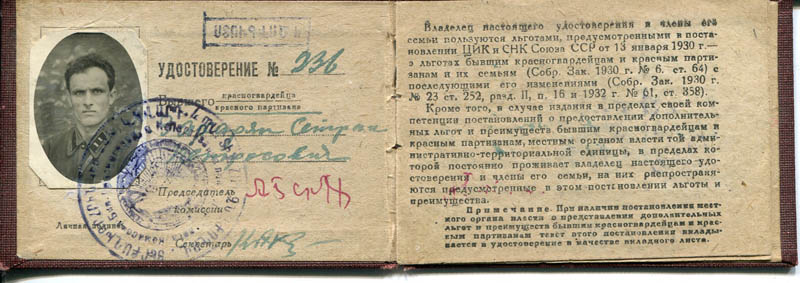 УДОСТОВЕРЕНИЕ № 236
Бывшего красногвардейца
красного партизана
Председатель
комиссии
Личная подпись
Секретарь
Владелец настоящего удостоверения и члены его
семьи пользуются льготами, предусмотренными в поста-
новлении ЦИК и СНК Союза ССР от 13 января 1930 г.—
о льготах бывшим красногвардейцам и красным парти-
занам и их семьям (Собр. Зак. 1930 г. № 6. ст. 64) с
последующими его изменениями (Собр. Зак. 1930 г.
№ 23 ст. 252, разд. II, п. 16 и 1932 г. № 61, ст. 358).
Кроме того, в случае издания в пределах своей ком-
петенции постановлений о предоставлении дополнитель-
ных льгот и преимуществ бывшим красногвардейцам и
красным партизанам, местным органом власти той адми-
нистративно-территориальной единицы, в пределах ко-
торой постоянно проживает владелец настоящего удо-
стоверения и члены его семьи, на них распространя-
ются предусмотренные в этом постановлении льготы и
преимущества.
Примечание. При наличии постановления мест-
ного органа власти о предоставлении дополнительных
льгот и преимуществ бывшим красногвардейцам и крас-
ным партизанам текст этого постановления вклады-
вается в удостоверение в качестве вкладного листа.